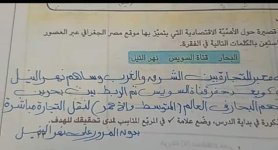 قصيرة حول الأهمّيّة الاقتصادية التي يتميّز بها موقع مصر الجغرافي عبر العصور
ستعين بالكلمات التالية في الفقرة.
البحار قناة السويس نهر النيل
معبر للتجارة بين الشرق والغرب وساهم نهر النيل
قناة السويس تم الربط بين بحرين
أهم البحار في العالم (المتوسط والأحمر) لنقل التجارة مباشرة
بدون المرور على
فكرة في بداية الدرس، وضع علامة ✓ في المربع المناسب لمدى تحقيقك للهدف.